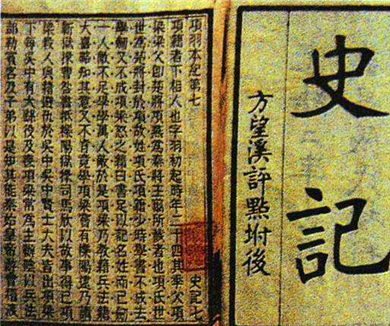 史記
方望溪評點坿後
史記七
項羽本紀第七
項籍者下相人也字羽初起時年二十四其季父項
梁梁父卽楚將項燕爲秦將王翦所戮者也項氏世
世爲楚將封於項故姓項氏項籍少時學書不成去
學劍又不成項梁怒之籍曰書足以記名姓而已劍
一人敵不足學學萬人敵於是項梁乃教籍兵法籍
大喜略知其意又不肯竟學項梁嘗有櫟陽逮乃請
蘄獄掾曹咎書抵櫟陽獄掾司馬欣以故事得已項
梁殺人與籍避仇於吳中吳中賢士大夫皆出項梁
下每吳中有大繇役及喪項梁常爲主辦陰以兵法
部勒賓客及子弟以是知其能秦始皇帝游會稽渡